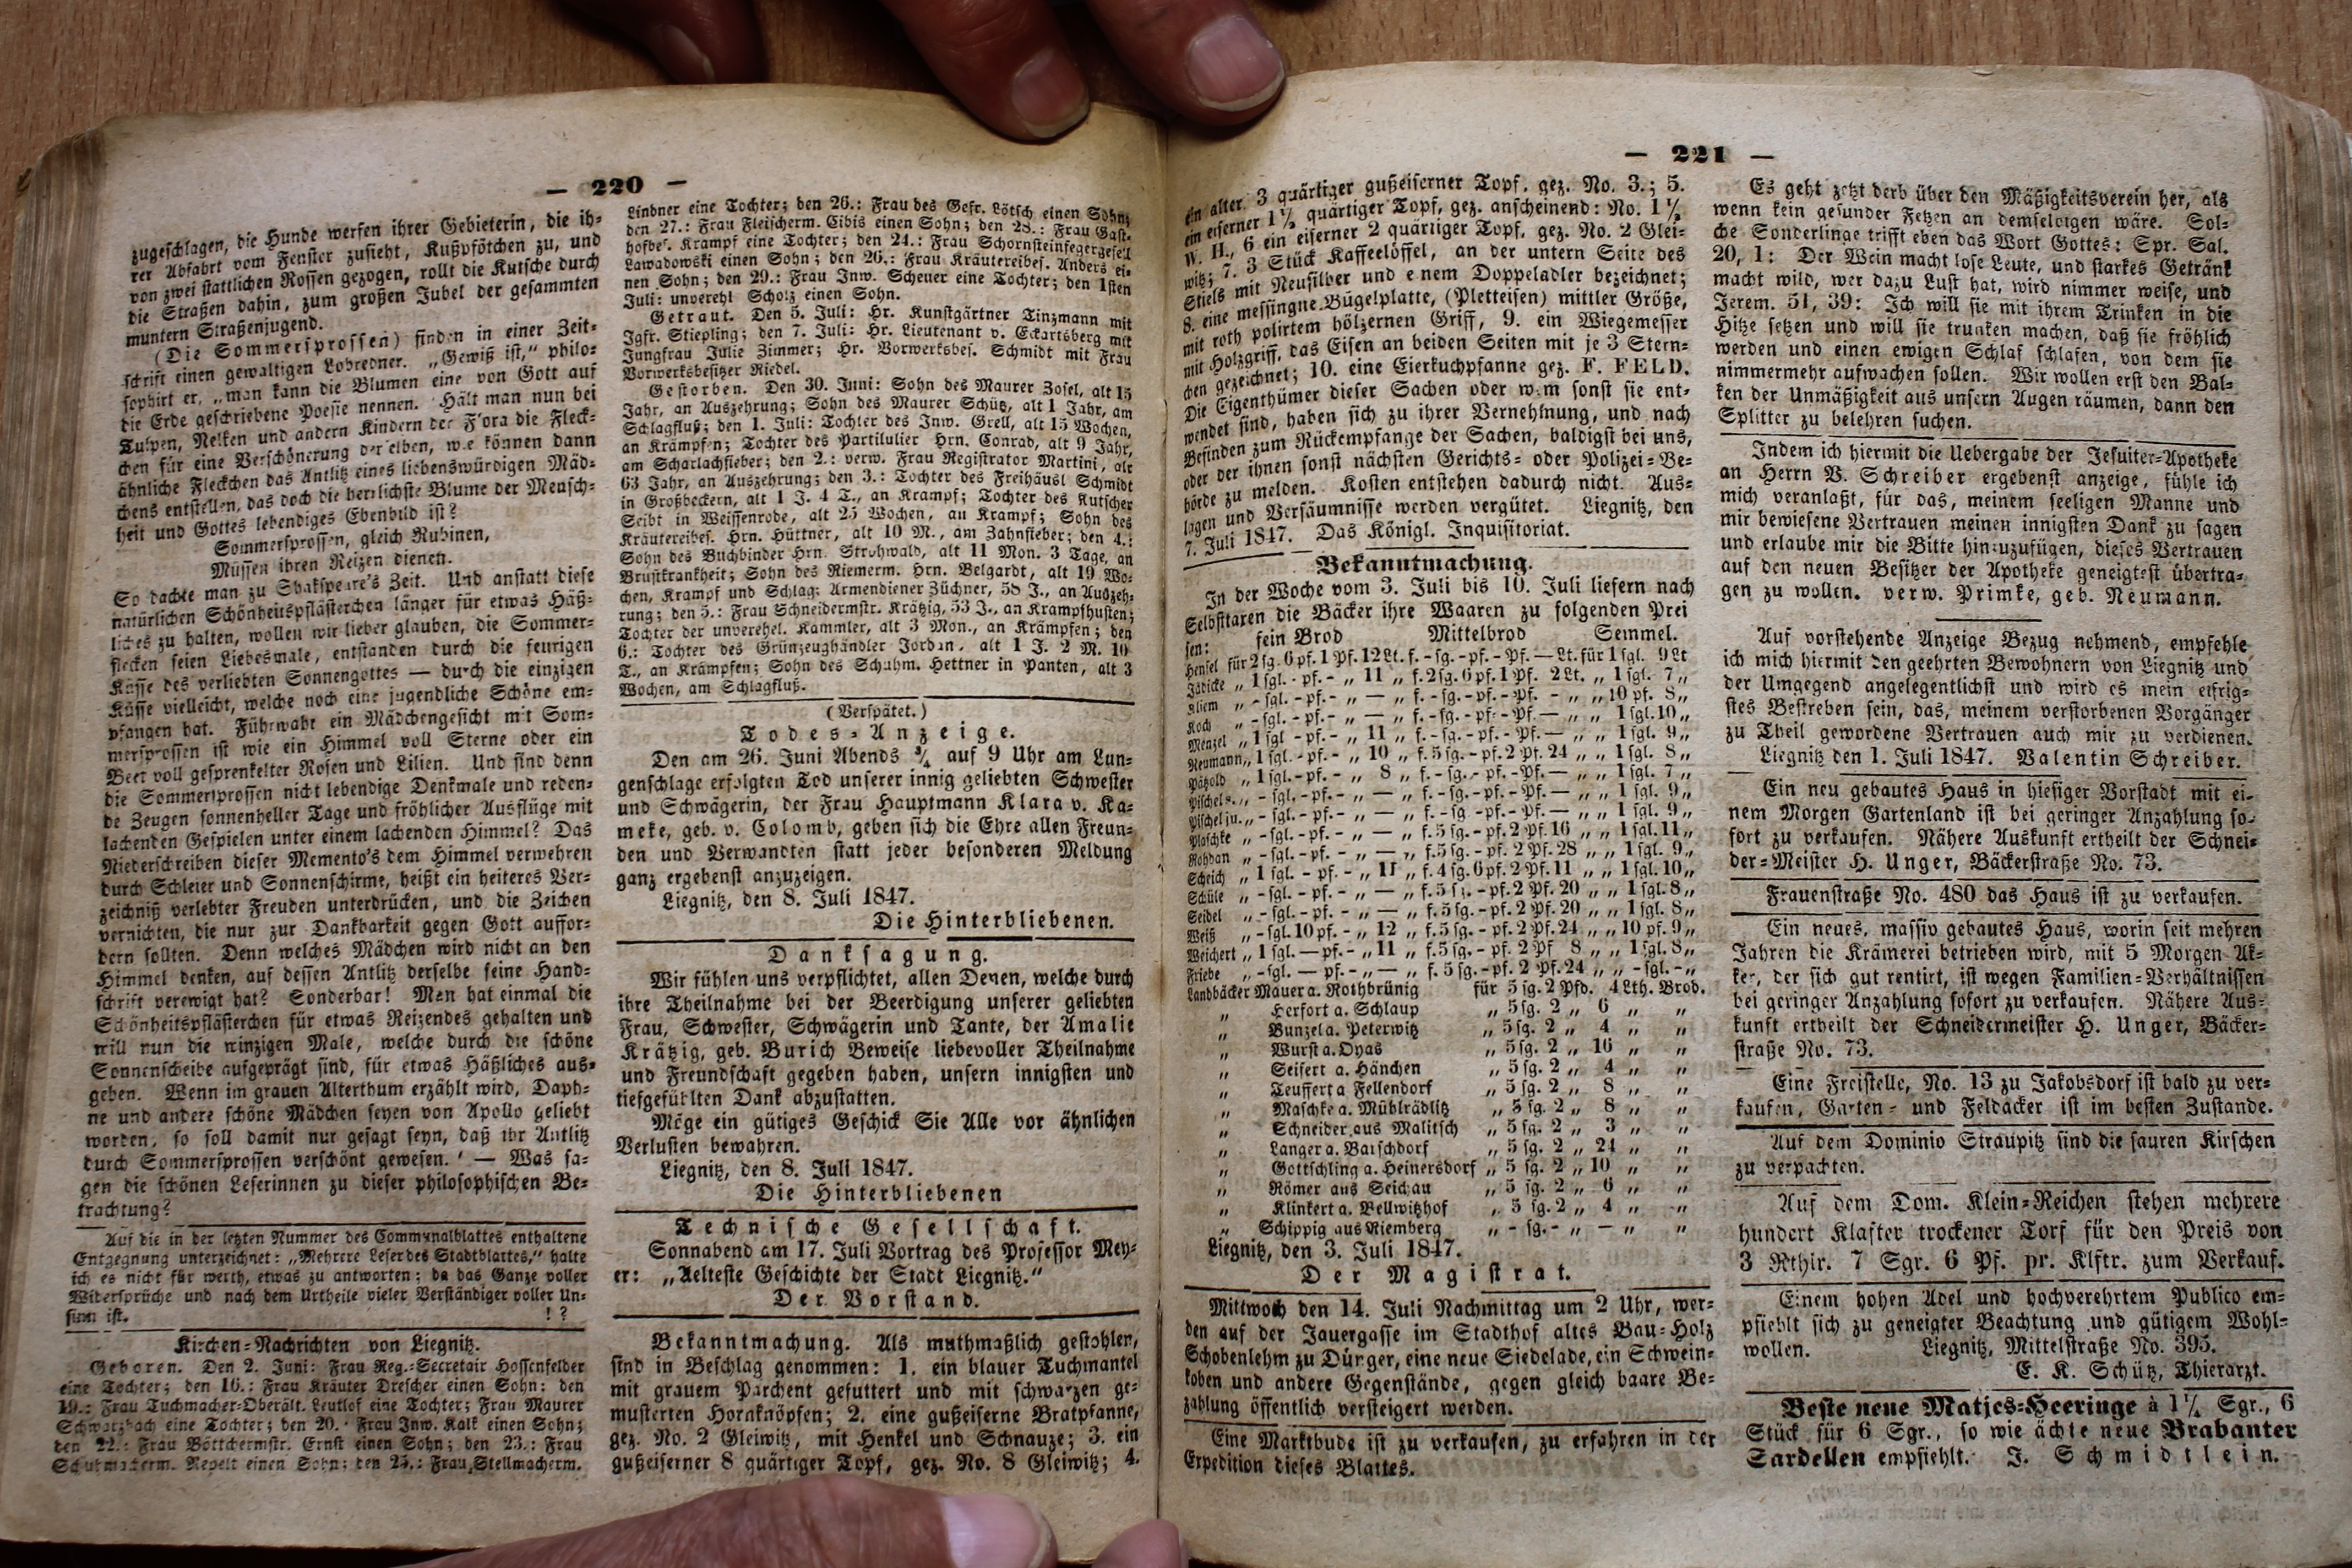 — 220 —
zugeschlagen, die Hunde werfen ihrer Gebieterin, die ih-
rer Abfahrt vom Fenster zusieht, Kußpfötchen zu, und
von zwei stattlichen Rossen gezogen, rollt die Kutsche durch
die Straßen dahin, zum großen Jubel der gesammten
muntern Straßenjugend.
(Die Sommersprossen) finden in einer Zeit-
schrift einen gewaltigen Lobredner. „Gewiß ist,“ philo-
sophirt er, „man kann die Blumen eine von Gott auf
die Erde geschriebene Poesie nennen. Hält man nun bei
Tulpen, Nelken und andern Kindern der Flora die Fleck-
chen für eine Verschönerung derselben, wie können dann
ähnliche Fleckchen das Antlitz eines liebenswürdigen Mäd-
chens entstellen, das doch die herrlichste Blume der Mensch-
heit und Gottes lebendiges Ebenbild ist?
Sommersprossen, gleich Rubinen,
Müssen ihren Reizen dienen.
So dachte man zu Shakspeare's Zeit. Und anstatt diese
natürlichen Schönheitspflästerchen länger für etwas Häß-
liches zu halten, wollen wir lieber glauben, die Sommer-
flecken seien Liebesmale, entstanden durch die feurigen
Küsse des verliebten Sonnengottes — durch die einzigen
Küsse vielleicht, welche noch eine jugendliche Schöne em-
pfangen hat. Führwahr ein Mädchengesicht mit Som-
mersprossen ist wie ein Himmel voll Sterne oder ein
Beet voll gesprenkelter Rosen und Lilien. Und sind denn
die Sommersprossen nicht lebendige Denkmale und reden-
de Zeugen sonnenheller Tage und fröhlicher Ausflüge mit
lachenden Gespielen unter einem lachenden Himmel? Das
Niederschreiben dieser Memento's dem Himmel verwehren
durch Schleier und Sonnenschirme, heißt ein heiteres Ver-
zeichniß verlebter Freuden unterdrücken, und die Zeichen
vernichten, die nur zur Dankbarkeit gegen Gott auffor-
dern sollten. Denn welches Mädchen wird nicht an den
Himmel denken, auf dessen Antlitz derselbe seine Hand-
schrift verewigt hat? Sonderbar! Man hat einmal die
Schönheitspflästerchen für etwas Reizendes gehalten und
will nun die winzigen Male, welche durch die schöne
Sonnenscheibe aufgeprägt sind, für etwas Häßliches aus-
geben. Wenn im grauen Alterthum erzählt wird, Daph-
ne und andere schöne Mädchen seyen von Apollo geliebt
worden, so soll damit nur gesagt seyn, daß ihr Antlitz
durch Sommersprossen verschönt gewesen.“ — Was sa-
gen die schönen Leserinnen zu dieser philosophischen Be-
trachtung?
Auf die in der letzten Nummer des Communalblattes enthaltene
Entgegnung unterzeichnet: „Mehrere Leser des Stadtblattes,“ halte
ich es nicht für werth, etwas zu antworten; da das Ganze voller
Widersprüche und nach dem Urtheile vieler Verständiger voller Un-
sinn ist. !?
Kirchen-Nachrichten von Liegnitz.
Geboren. Den 2. Juni: Frau Reg.-Secretair Hossenfelder
eine Tochter; den 16.: Frau Kräuter Drescher einen Sohn; den
19.: Frau Tuchmacher-Oberält. Leutlof eine Tochter; Frau Maurer
Schwarzbach eine Tochter; den 20.: Frau Inw. Kalk einen Sohn;
den 22.: Frau Böttchermstr. Ernst einen Sohn; den 23.: Frau
Schuhmacherm. Repelt einen Sohn; den 25.: Frau Stellmacherm.
Lindner eine Tochter; den 26.: Frau des Gefr. Lötsch einen Sohn;
den 27.: Frau Fleischerm. Eibis einen Sohn; den 28.: Frau Gast-
hofbes. Krampf eine Tochter; den 24.: Frau Schornsteinfegergesell
Lawadowski einen Sohn; den 26.: Frau Kräutereibes. Anders ei-
nen Sohn; den 29.: Frau Inw. Scheuer eine Tochter; den 1sten
Juli: unverehl Scholz einen Sohn.
Getraut. Den 5. Juli: Hr. Kunstgärtner Tinzmann mit
Jgfr. Stiepling; den 7. Juli: Hr. Lieutenant v. Eckartsberg mit
Jungfrau Julie Zimmer; Hr. Vorwerksbes. Schmidt mit Frau
Vorwerksbesitzer Riedel.
Gestorben. Den 30. Juni: Sohn des Maurer Zosel, alt 15
Jahr, an Auszehrung; Sohn des Maurer Schütz, alt 1 Jahr, am
Schlagfluß; den 1. Juli: Tochter des Inw. Grell, alt 15 Wochen,
an Krämpfen; Tochter des Partikulier Hrn. Conrad, alt 9 Jahr,
am Scharlachfieber; den 2.: verw. Frau Registrator Martini, alt
63 Jahr, an Auszehrung; den 3.: Tochter des Freihäusl Schmidt
in Großbeckern, alt 1 J. 4 T., an Krampf; Tochter des Kutscher
Seibt in Weissenrode, alt 25 Wochen, an Krampf; Sohn des
Kräutereibes. Hrn. Hüttner, alt 10 M., am Zahnfieber; den 4.:
Sohn des Buchbinder Hrn. Strohwald, alt 11 Mon. 3 Tage, an
Brustkrankheit; Sohn des Riemerm. Hrn. Belgardt, alt 19 Wo-
chen, Krampf und Schlag; Armendiener Züchner, 58 J., an Auszeh-
rung; den 5.: Frau Schneidermstr. Krätzig, 53 J., an Krampfhusten;
Tochter der unverehel. Kammler, alt 3 Mon., an Krämpfen; den
6.: Tochter des Grünzeughändler Jordan, alt 1 J. 2 M. 10
T., an Krämpfen; Sohn des Schuhm. Hettner in Panten, alt 3
Wochen, am Schlagfluß.
(Verspätet.)
Todes-Anzeige.
Den am 26. Juni Abends ¾ auf 9 Uhr am Lun-
genschlage erfolgten Tod unserer innig geliebten Schwester
und Schwägerin, der Frau Hauptmann Klara v. Ka-
meke, geb. v. Colomb, geben sich die Ehre allen Freun-
den und Verwandten statt jeder besonderen Meldung
ganz ergebenst anzuzeigen.
Liegnitz, den 8. Juli 1847.
Die Hinterbliebenen.
Danksagung.
Wir fühlen uns verpflichtet, allen Denen, welche durch
ihre Theilnahme bei der Beerdigung unserer geliebten
Frau, Schwester, Schwägerin und Tante, der Amalie
Krätzig, geb. Burich Beweise liebevoller Theilnahme
und Freundschaft gegeben haben, unsern innigsten und
tiefgefühlten Dank abzustatten.
Möge ein gütiges Geschick Sie Alle vor ähnlichen
Verlusten bewahren.
Liegnitz, den 8. Juli 1847.
Die Hinterbliebenen
Technische Gesellschaft.
Sonnabend am 17. Juli Vortrag des Professor Mey-
er: „Aelteste Geschichte der Stadt Liegnitz.“
Der Vorstand.
Bekanntmachung. Als muthmaßlich gestohlen,
sind in Beschlag genommen: 1. ein blauer Tuchmantel
mit grauem Parchent gefuttert und mit schwarzen ge-
musterten Hornknöpfen; 2. eine gußeiserne Bratpfanne,
gez. No. 2 Gleiwitz, mit Henkel und Schnauze; 3. ein
gußeiserner 8 quärtiger Topf, gez. No. 8 Gleiwitz; 4.
— 221 —
ein alter 3 quärtiger gußeiserner Topf, gez. No. 3.; 5.
ein eiserner 1½ quärtiger Topf, gez. anscheinend: No. 1½
W. H., 6 ein eiserner 2 quärtiger Topf, gez. No. 2 Glei-
witz; 7. 3 Stück Kaffeelöffel, an der untern Seite des
Stiels mit Neusilber und einem Doppeladler bezeichnet;
8. eine messingne Bügelplatte, (Pletteisen) mittler Größe,
mit roth polirtem hölzernen Griff, 9. ein Wiegemesser
mit Holzgriff, das Eisen an beiden Seiten mit je 3 Stern-
chen gezeichnet; 10. eine Eierkuchpfanne gez. F. FELD.
Die Eigenthümer dieser Sachen oder wem sonst sie ent-
wendet sind, haben sich zu ihrer Vernehmung, und nach
Befinden zum Rückempfange der Sachen, baldigst bei uns,
oder der ihnen sonst nächsten Gerichts- oder Polizei-Be-
hörde zu melden. Kosten entstehen dadurch nicht. Aus-
lagen und Versäumnisse werden vergütet. Liegnitz, den
7. Juli 1847. Das Königl. Inquisitoriat.
Bekanntmachung.
In der Woche vom 3. Juli bis 10. Juli liefern nach
Selbsttaxen die Bäcker ihre Waaren zu folgenden Prei
sen: fein Brod Mittelbrod Semmel.
Hensel für 2 sg. 6 pf. 1 Pf. 12 Lt. f. - sg. - pf. - Pf. — Lt. für 1 sgl. 9 Lt
Jädicke „ 1 sgl. - pf. - „ 11 „ f. 2 sg. 6 pf. 1 Pf. 2 Lt. „ 1 sgl. 7 „
Kliem „ - sgl. - pf. - „ — „ f. - sg. - pf. - Pf. - „ „ 10 pf. 8 „
Koch „ - sgl. - pf. - „ — „ f. - sg. - pf. - Pf. — „ „ 1 sgl. 10 „
Menzel „ 1 sgl - pf. - „ 11 „ f. - sg. - pf. - Pf. — „ „ 1 sgl. 9 „
Neumann „ 1 sgl. - pf. - „ 10 „ f. 5 sg. - pf. 2 Pf. 24 „ „ 1 sgl. 8 „
Pätzold „ 1 sgl. - pf. - „ 8 „ f. - sg. - pf. - Pf. — „ „ 1 sgl. 7 „
Pischel s. „ - sgl. - pf. - „ — „ f. - sg. - pf. - Pf. — „ „ 1 sgl. 9 „
Pischel ju. „ - sgl. - pf. - „ — „ f. - sg - pf. - Pf. — „ „ 1 sgl. 9 „
Plaschke „ - sgl. - pf. - „ — „ f. 5 sg. - pf. 2 Pf. 16 „ „ 1 sgl. 11 „
Rohdan „ - sgl. - pf. - „ — „ f. 5 sg. - pf. 2 Pf. 28 „ „ 1 sgl. 9 „
Scheich „ 1 sgl. - pf. - „ 11 „ f. 4 sg. 6 pf. 2 Pf. 11 „ „ 1 sgl. 10 „
Schüle „ - sgl. - pf. - „ — „ f. 5 sg. - pf. 2 Pf. 20 „ „ 1 sgl. 8 „
Seidel „ - sgl. - pf. - „ — „ f. 5 sg. - pf. 2 Pf. 20 „ „ 1 sgl. 8 „
Weiß „ - sgl. 10 pf. - „ 12 „ f. 5 sg. - pf. 2 Pf. 24 „ „ 10 pf. 9 „
Weichert „ 1 sgl. — pf. - „ 11 „ f. 5 sg. - pf. 2 Pf 8 „ „ 1 sgl. 8 „
Friebe „ - sgl. — pf. - „ — „ f. 5 sg. - pf. 2 Pf. 24 „ „ - sgl. - „
Landbäcker Mauer a. Rothbrünig für 5 sg. 2 Pfd. 4 Lth. Brod.
„ Herfort a. Schlaup „ 5 sg. 2 „ 6 „ „
„ Bunzel a. Peterwitz „ 5 sg. 2 „ 4 „ „
„ Wurst a. Dyas „ 5 sg. 2 „ 16 „ „
„ Seifert a. Hänchen „ 5 sg. 2 „ 4 „ „
„ Teuffert a Fellendorf „ 5 sg. 2 „ 8 „ „
„ Maschke a. Mühlrädlitz „ 5 sg. 2 „ 8 „ „
„ Schneider aus Malitsch „ 5 sg. 2 „ 3 „ „
„ Langer a. Barschdorf „ 5 sg. 2 „ 24 „ „
„ Gottschling a. Heinersdorf „ 5 sg. 2 „ 10 „ „
„ Römer aus Seichau „ 5 sg. 2 „ 6 „ „
„ Klinkert a. Vellwitzhof „ 5 sg. 2 „ 4 „ „
„ Schippig aus Niemberg „ - sg. - „ — „ „
Liegnitz, den 3. Juli 1847.
Der Magistrat.
Mittwoch den 14. Juli Nachmittag um 2 Uhr, wer-
den auf der Jauergasse im Stadthof altes Bau-Holz
Schobenlehm zu Dünger, eine neue Siedelade, ein Schwein-
koben und andere Gegenstände, gegen gleich baare Be-
zahlung öffentlich versteigert werden.
Eine Marktbude ist zu verkaufen, zu erfahren in der
Expedition dieses Blattes.
Es geht jetzt derb über den Mäßigkeitsverein her, als
wenn kein gesunder Fetzen an demselbigen wäre. Sol-
che Sonderlinge trifft eben das Wort Gottes: Spr. Sal.
20, 1: Der Wein macht lose Leute, und starkes Getränk
macht wild, wer dazu Lust hat, wird nimmer weise, und
Jerem. 51, 39: Ich will sie mit ihrem Trinken in die
Hitze setzen und will sie trunken machen, daß sie fröhlich
werden und einen ewigen Schlaf schlafen, von dem sie
nimmermehr aufwachen sollen. Wir wollen erst den Bal-
ken der Unmäßigkeit aus unsern Augen räumen, dann den
Splitter zu belehren suchen.
Indem ich hiermit die Uebergabe der Jesuiter-Apotheke
an Herrn V. Schreiber ergebenst anzeige, fühle ich
mich veranlaßt, für das, meinem seeligen Manne und
mir bewiesene Vertrauen meinen innigsten Dank zu sagen
und erlaube mir die Bitte hinzuzufügen, dieses Vertrauen
auf den neuen Besitzer der Apotheke geneigtest übertra-
gen zu wollen. verw. Primke, geb. Neumann.
Auf vorstehende Anzeige Bezug nehmend, empfehle
ich mich hiermit den geehrten Bewohnern von Liegnitz und
der Umgegend angelegentlichst und wird es mein eifrig-
stes Bestreben sein, das, meinem verstorbenen Vorgänger
zu Theil gewordene Vertrauen auch mir zu verdienen.
Liegnitz den 1. Juli 1847. Valentin Schreiber.
Ein neu gebautes Haus in hiesiger Vorstadt mit ei-
nem Morgen Gartenland ist bei geringer Anzahlung so-
fort zu verkaufen. Nähere Auskunft ertheilt der Schnei-
der-Meister H. Unger, Bäckerstraße No. 73.
Frauenstraße No. 480 das Haus ist zu verkaufen.
Ein neues, massiv gebautes Haus, worin seit mehren
Jahren die Krämerei betrieben wird, mit 5 Morgen Ak-
ker, der sich gut rentirt, ist wegen Familien-Verhältnissen
bei geringer Anzahlung sofort zu verkaufen. Nähere Aus-
kunft ertheilt der Schneidermeister H. Unger, Bäcker-
straße No. 73.
Eine Freistelle, No. 13 zu Jakobsdorf ist bald zu ver-
kaufen, Garten- und Feldacker ist im besten Zustande.
Auf dem Dominio Straupitz sind die sauren Kirschen
zu verpachten.
Auf dem Dom. Klein-Reichen stehen mehrere
hundert Klafter trockener Torf für den Preis von
3 Rthlr. 7 Sgr. 6 Pf. pr. Klftr. zum Verkauf.
Einem hohen Adel und hochverehrtem Publico em-
pfiehlt sich zu geneigter Beachtung und gütigem Wohl-
wollen. Liegnitz, Mittelstraße No. 395.
E. K. Schütz, Thierarzt.
Beste neue Matjes-Heeringe à 1¼ Sgr., 6
Stück für 6 Sgr., so wie ächte neue Brabanter
Sardellen empfiehlt. J. Schmidtlein.